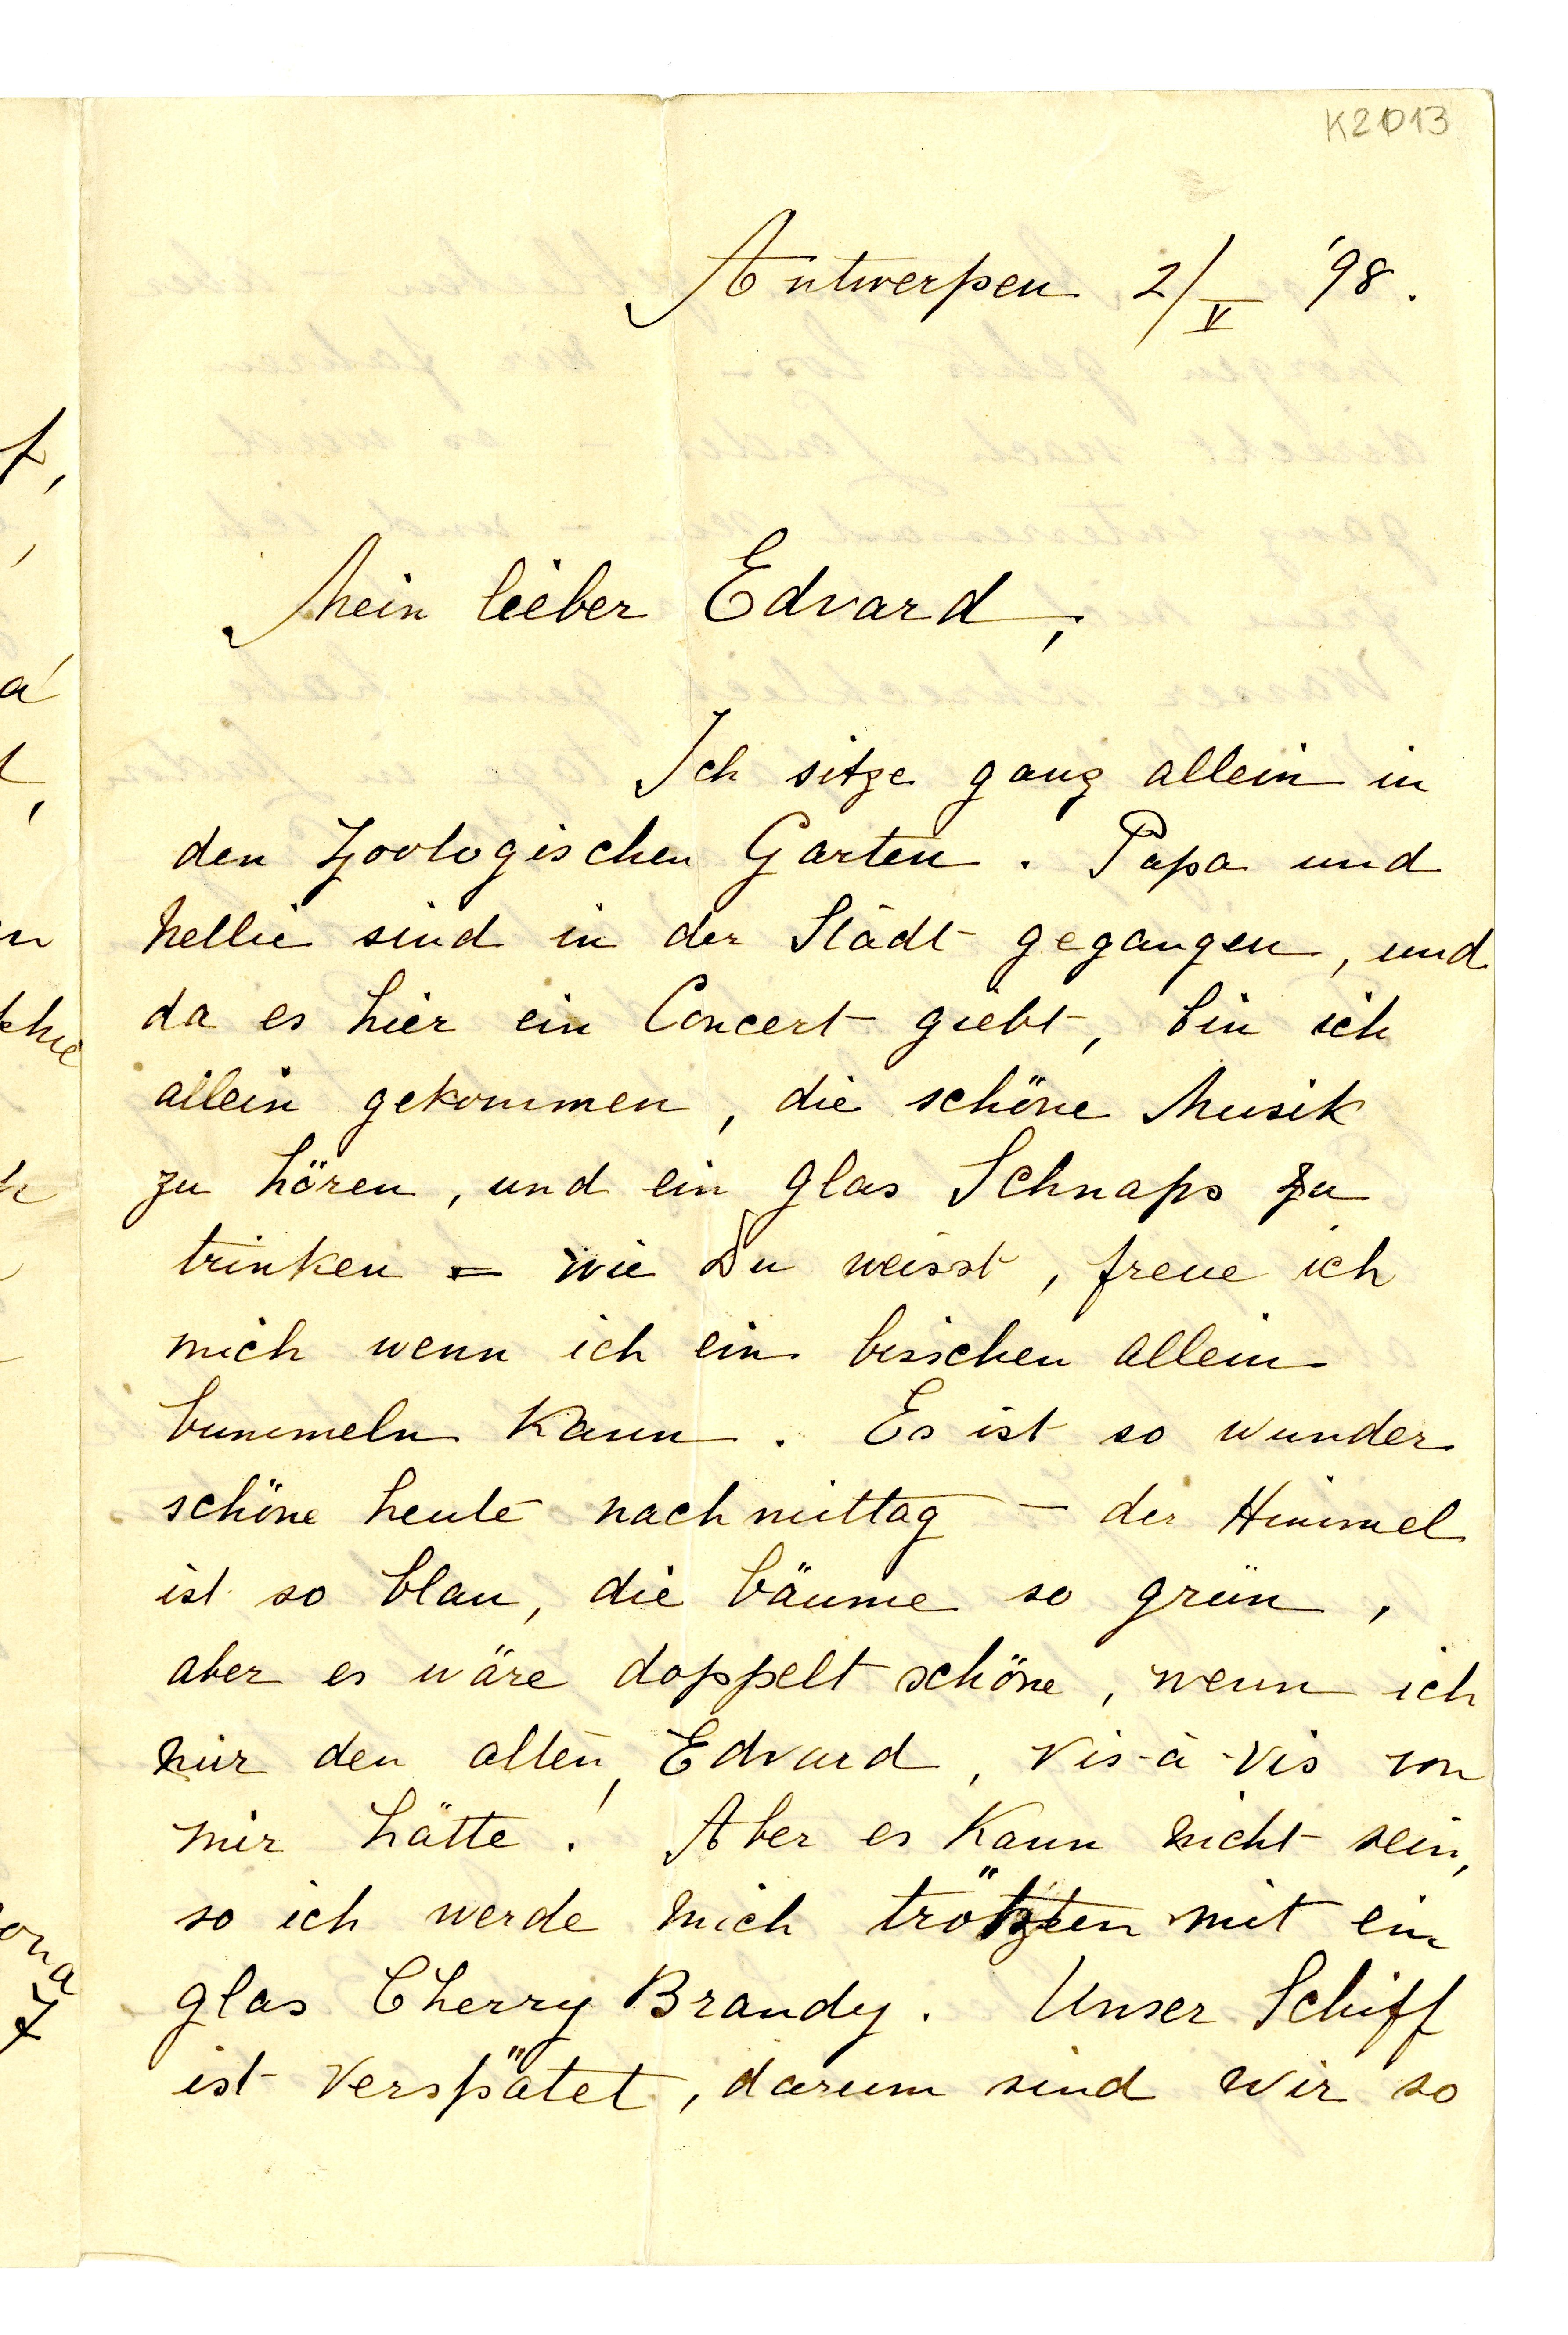 K2013
Antwerpen 2/V '98.
Mein lieber Edvard,
Ich sitze ganz allein in
den Zoologischen Garten. Papa und
Nellie sind in der Städt gegangen, und
da es hier ein Concert giebt, bin ich
allein gekommen, die schöne Musik
zu hören, und ein glas Schnaps zu
trinken = wie Du weisst, freue ich
mich wenn ich ein bisschen allein
bummeln kann. Es ist so wunder
schöne heute nachmittag – der Himmel
ist so blau, die bäume so grün,
aber es wäre doppelt schöne, wenn ich
nur den alten, Edvard, vis-à-vis von
mir hätte! Aber es kann nicht sein,
so ich werde mich mit ein
glas Cherry Brandy. Unser Schiff
ist verspätet, darum sind wir so